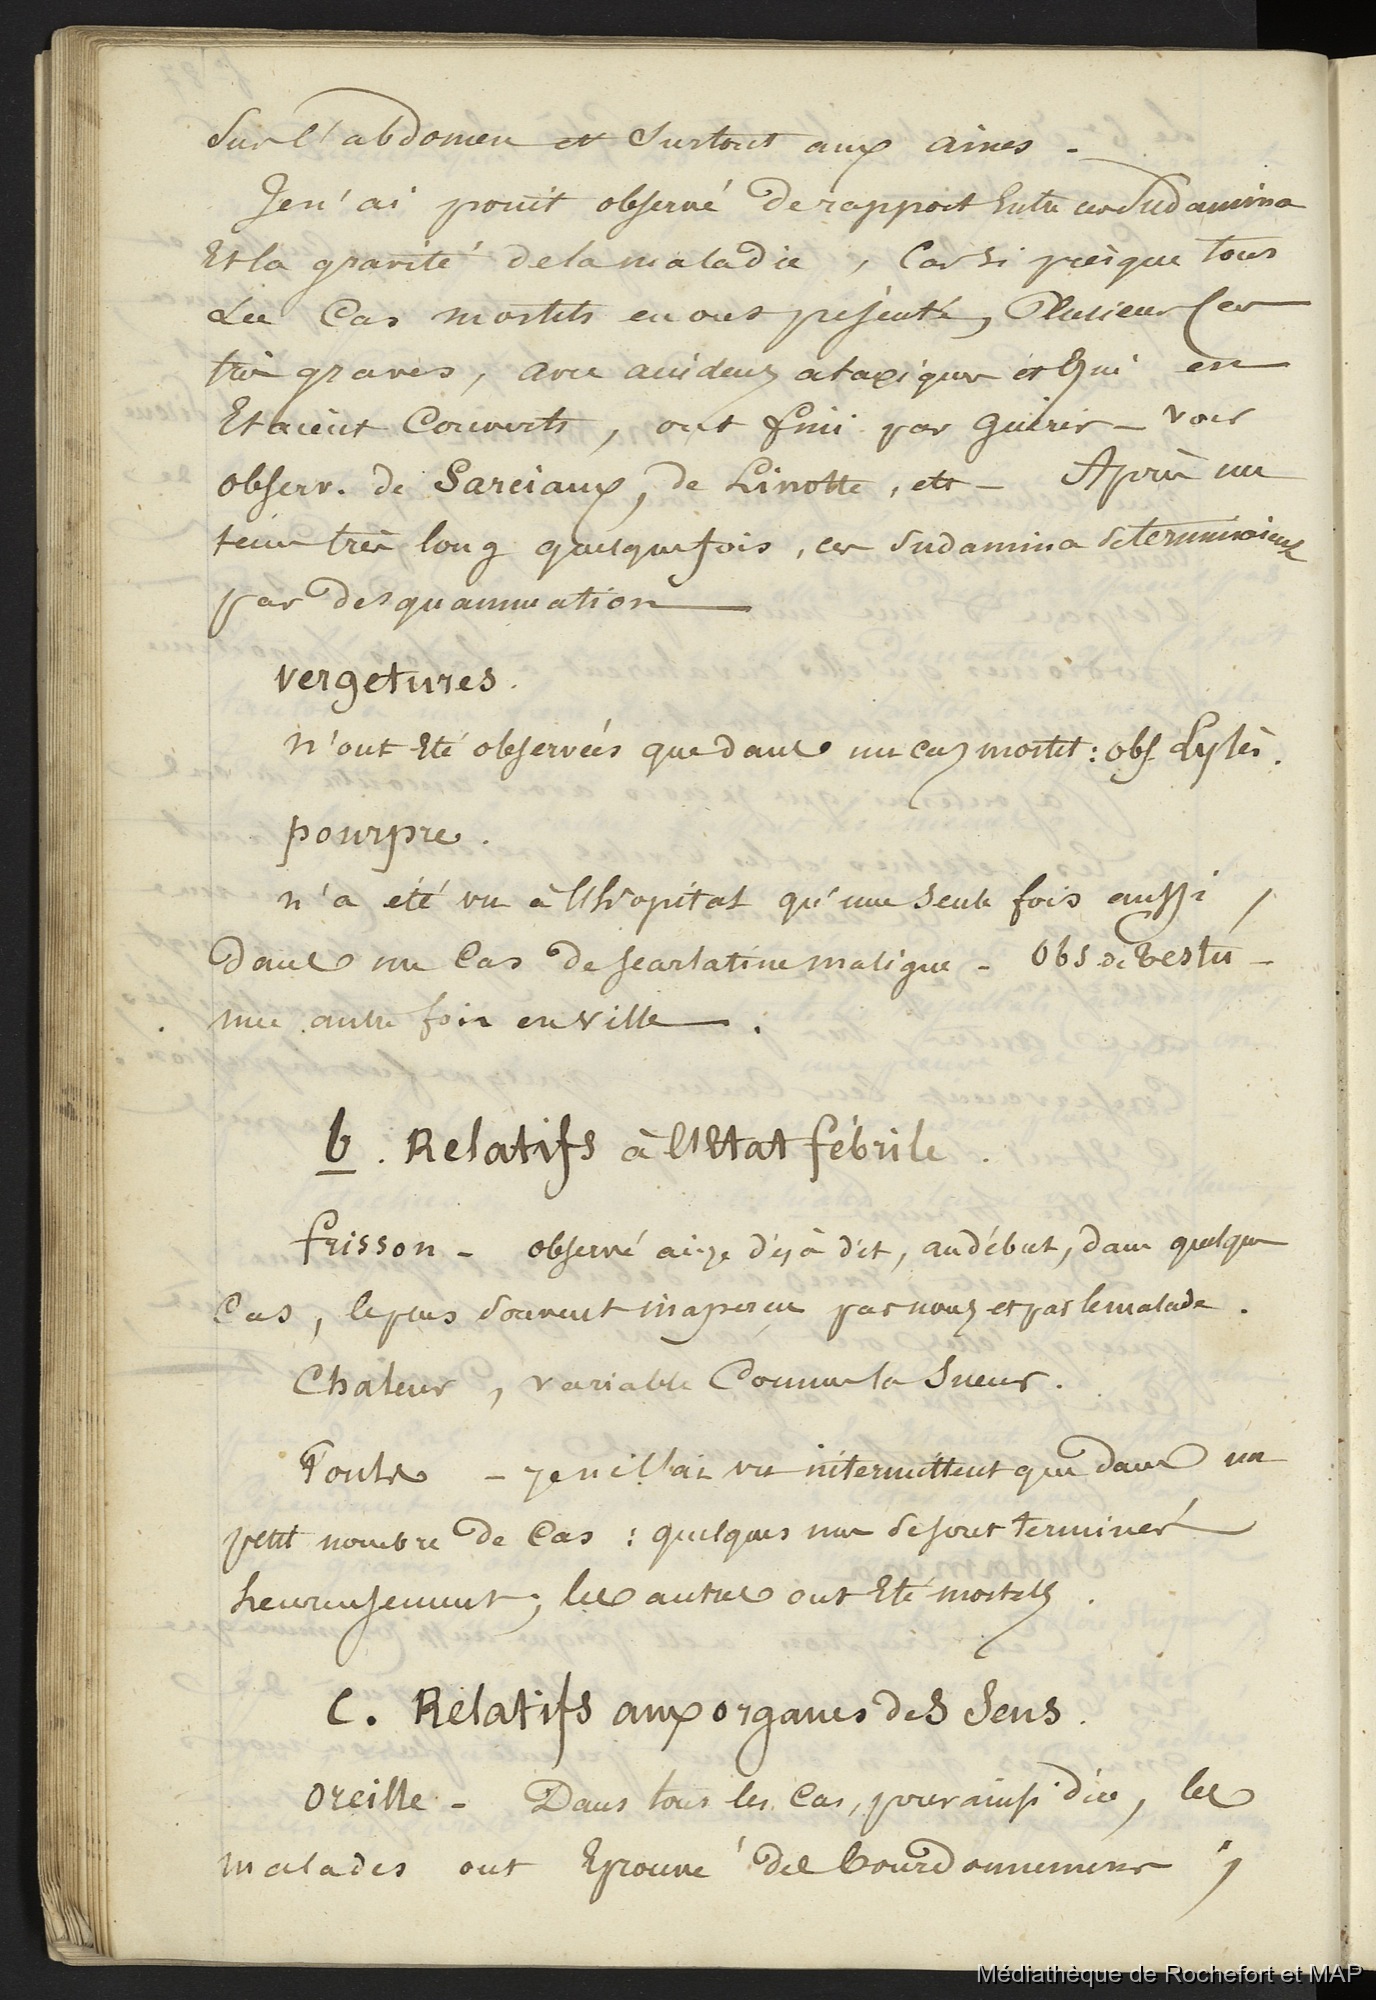 Sur l'abdomen et Surtout aux aines -
Je n'ai point observé de rapport Entre ces Sudamina
Et la gravité de la maladie, Car Si presque tous
Les Cas mortels en ont présenté, Plusieurs Cas
très graves, avec accidens ataxiques et qui en
Etaient Couverts, ont fini par guérir - voir
observ. de Sarciaux, de Linotte, etc - Après un
tems très long quelquefois, ces Sudamina se terminaient
par desquammation
vergetures.
n'ont Eté observées que dans un cas mortel : obs. Lylès.
pourpre.
n'a été vu à l'hôpital qu'une Seule fois aussi,
dans un Cas de scarlatine maligne - Obs de Testu -
une autre fois en ville.
b. Relatifs à l'Etat fébrile.
frisson - observé ai-je déjà dit, au début, dans quelques
Cas, le plus Souvent inaperçu par nous et par le malade.
Chaleur, variable Comme la Sueur.
Pouls - je ne l'ai vu intermittent que dans un
petit nombre de Cas : quelques uns se sont terminés
heureusement; les autres ont Eté mortels.
C. Relatifs aux organes des Sens.
Oreille - Dans tous les Cas, pour ainsi dire, les
malades ont Eprouvé des bourdonnemens,
Médiathèque de Rochefort et MAP